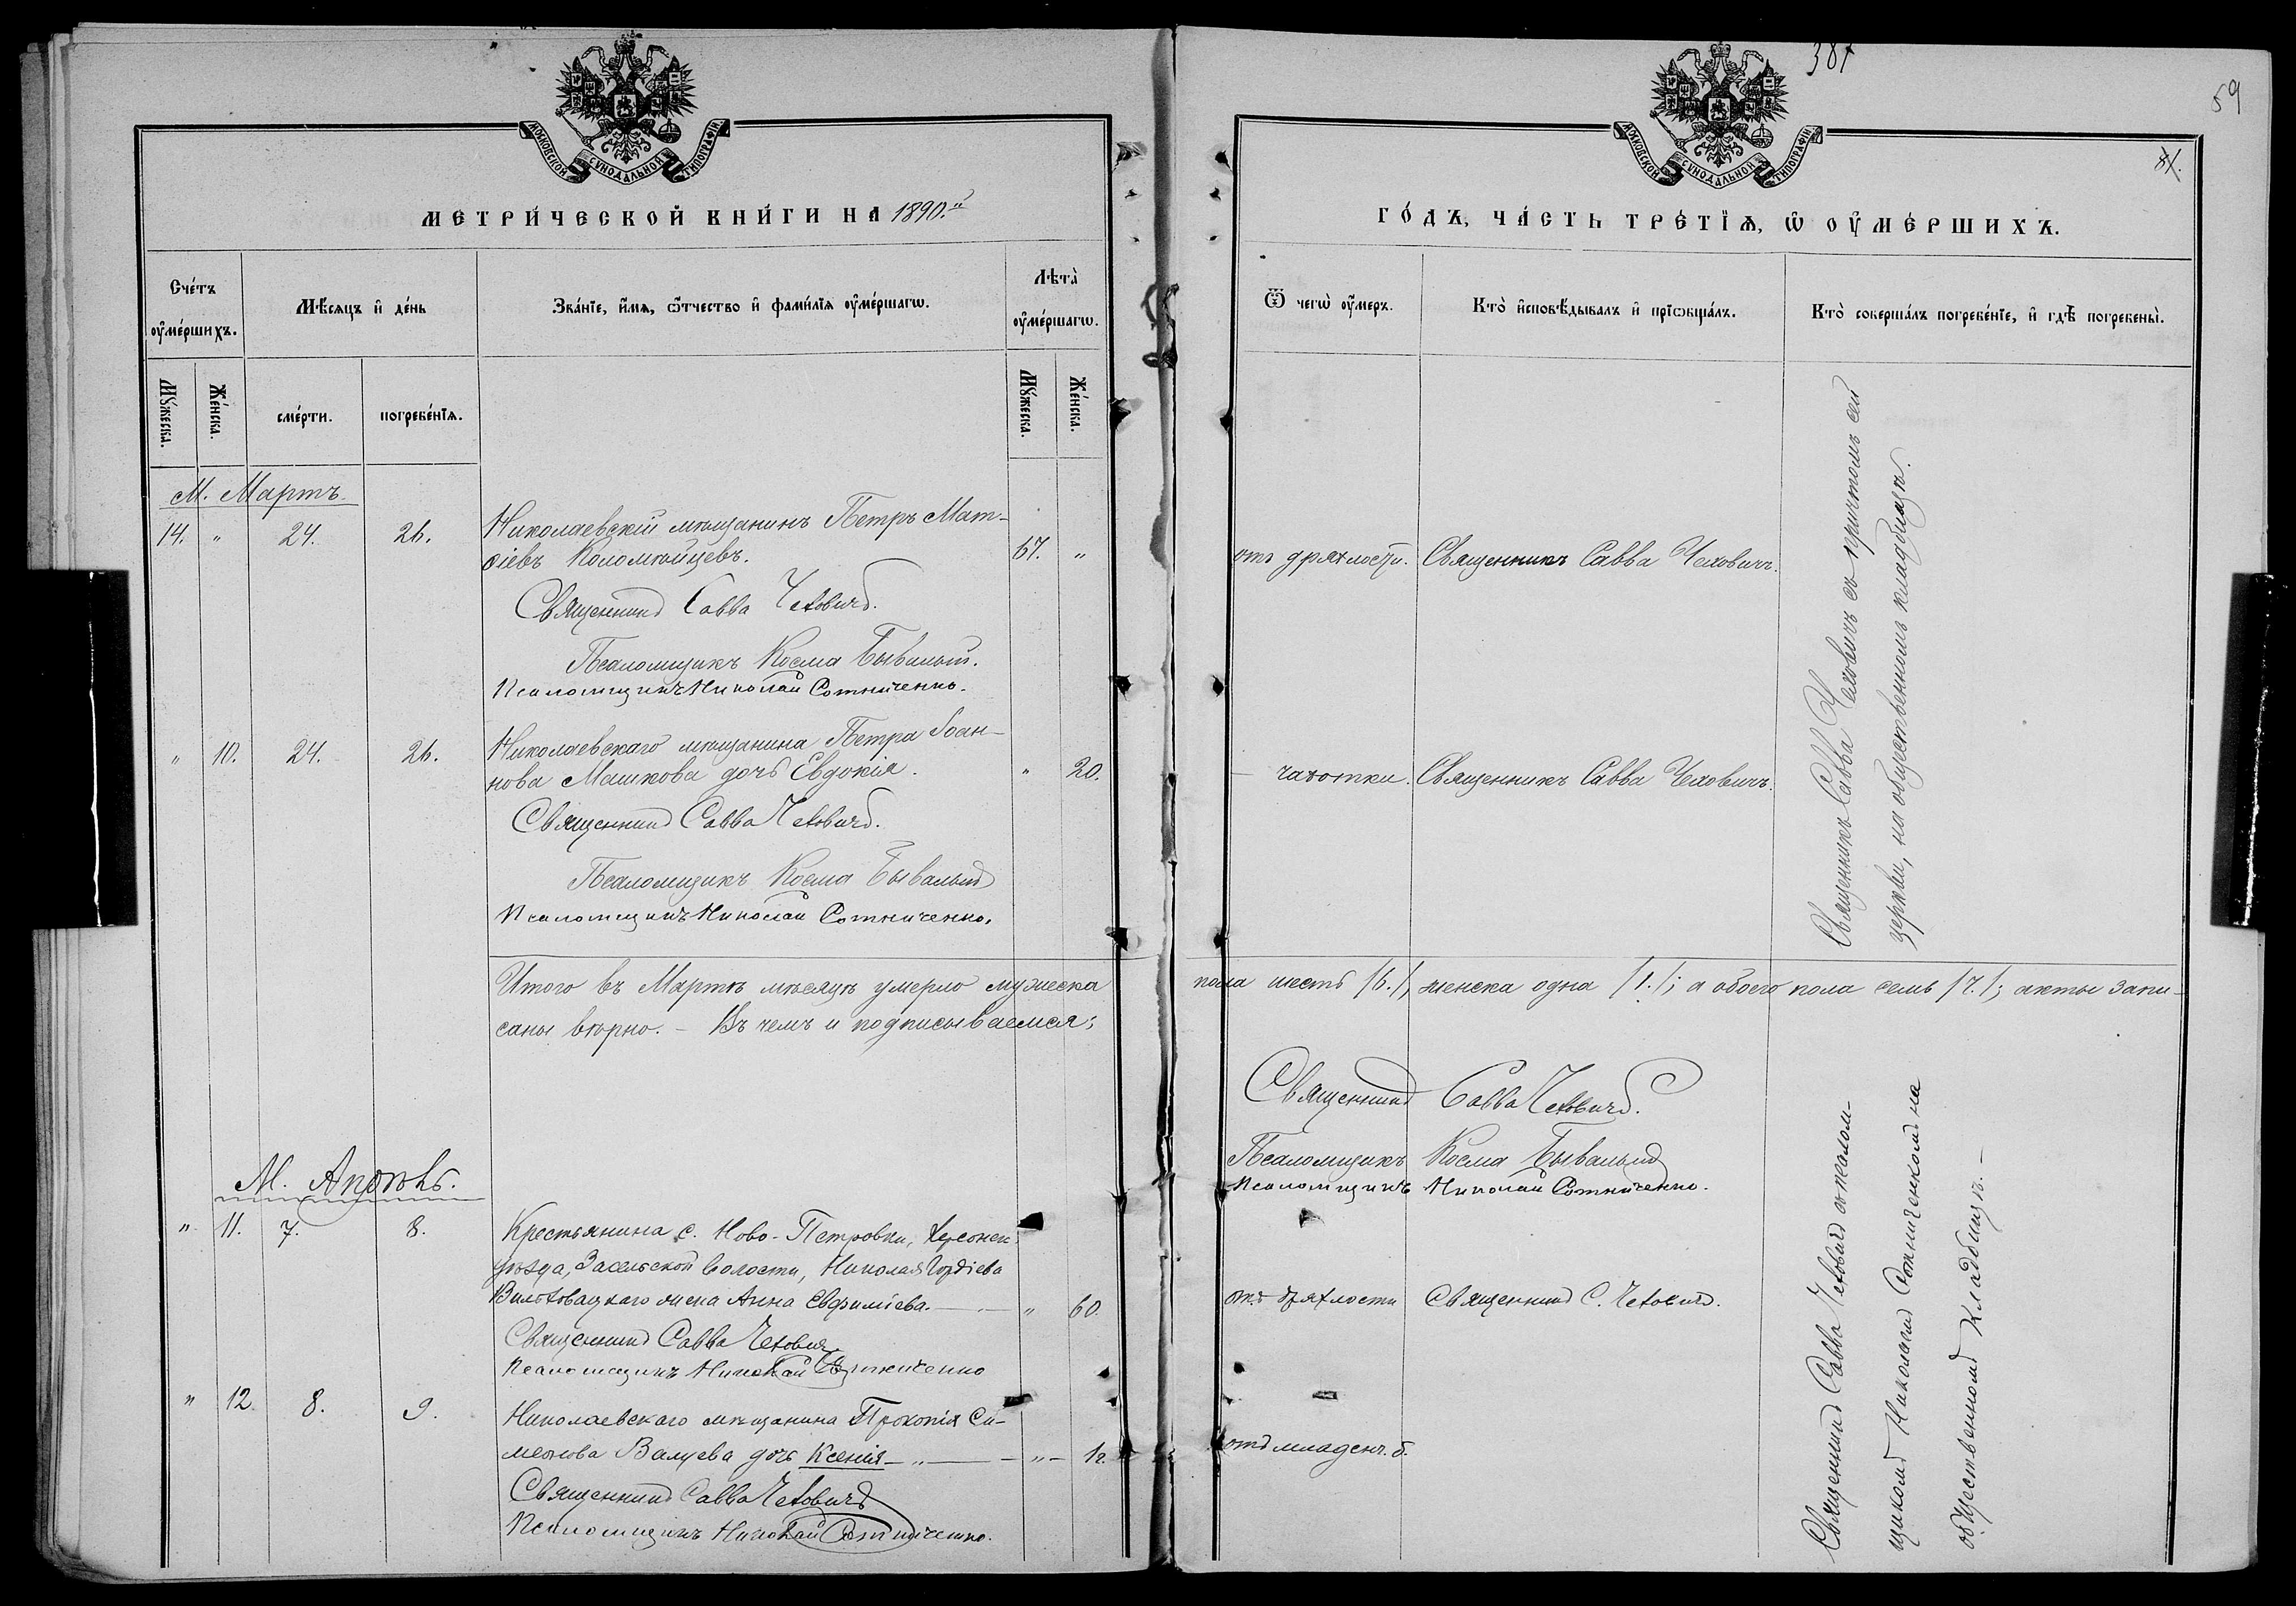 МОСКОВСКОЙ СѴНОДАЛЬНОЙ ТИПОГРАФІИ
МЕТРИ́ЧЕСКОЙ КНИ́ГИ НА 1890.й
Сче́тъ оу҆ме́ршихъ.
Мѣ́сяцъ и҆ де́нь
Зва́нїе, и҆́мѧ, ѻ҆́тчество и҆ фами́лїѧ оу҆ме́ршагѡ.
Лѣта̀ оу҆ме́ршагѡ.
Мꙋ́жеска.
Же́нска.
сме́рти.
погребе́нїѧ.
Мꙋ́жеска.
Же́нска.
М. Мартъ.
14. " 24. 26. Николаевскій мѣщанинъ Петръ Мат-
ѳіевъ Коломойцевъ. 67. "
Священникъ Савва Чеховичъ.
Псаломщикъ Косма Бывалый.
Псаломщикъ Николай Сотниченко.
" 10. 24. 26. Николаевскаго мѣщанина Петра Іоан-
нова Машкова дочь Евдокія. " 20.
Священникъ Савва Чеховичъ.
Псаломщикъ Косма Бывалый
Псаломщикъ Николай Сотниченко.
Итого въ Мартѣ мѣсяцѣ умерло мужеска
саны вѣрно. – Въ чемъ и подписываемся:
М. Апрѣль.
" 11. 7. 8. Крестьянина с. Ново-Петровки, Херсонск.
уѣзда, Засельской волости, Николая Гордіева
жена Анна Евфиміева. " 60.
Священникъ Савва Чеховичъ
Псаломщикъ Николай Сотниченко
" 12. 8. 9. Николаевскаго мѣщанина Прокопія Си-
меонова Валуева дочь Ксенія – " – – " –
Священникъ Савва Чеховичъ
Псаломщикъ Николай Сотниченко.
387
59
МОСКОВСКОЙ СѴНОДАЛЬНОЙ ТИПОГРАФІИ
ГО́ДЪ, ЧА́СТЬ ТРЕ́ТЇѦ, Ѡ҆ ОУ҆МЕ́РШИХЪ.
Ѿ чегѡ̀ оу҆́меръ.
Кто̀ и҆сповѣ́дывалъ и҆ прїѡбща́лъ.
Кто̀ соверша́лъ погребе́нїе, и҆ гдѣ̀ погребены̀.
отъ дряхлости. Священникъ Савва Чеховичъ.
– чахотки. Священникъ Савва Чеховичъ.
Священникъ Савва Чеховичъ съ причтомъ сей
церкви, на общественномъ кладбищѣ.
пола шесть /6./, женска одна /1./; а обоего пола семь /7./; акты запи-
Священникъ Савва Чеховичъ.
Псаломщикъ Косма Бывалый
Псаломщикъ Николай Сотниченко.
отъ дряхлости Священникъ С. Чеховичъ.
отъ младен. б.
Священникъ Савва Чеховичъ съ псалом-
щикомъ Николаемъ Сотниченкомъ на
общественномъ кладбищѣ. –